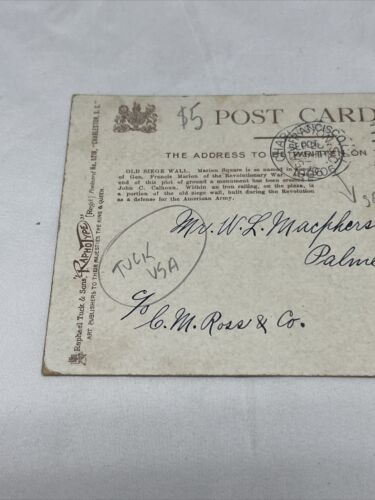 $5
POST CARD
THE ADDRESS TO BE WRITTEN ON
SAN FRANCISCO
OLD SIEGE WALL. Marion Square is so named in
of Gen. Francis Marion of the Revolutionary War.
end of this plot of ground a monument has been
John C. Calhoun. Within an iron railing, on the plaza, is
a portion of the old siege wall, built during the Revolution
as a defense for the American Army.
Raphael Tuck & Sons' "RAPHOTYPE" [Regd.] Postcard "CHARLESTON, S. C."
ART PUBLISHERS TO THEIR MAJESTIES THE KING & QUEEN.
TUCK
USA
Mr. W. L. Macphers
Palme
c/o C. M. Ross & Co.